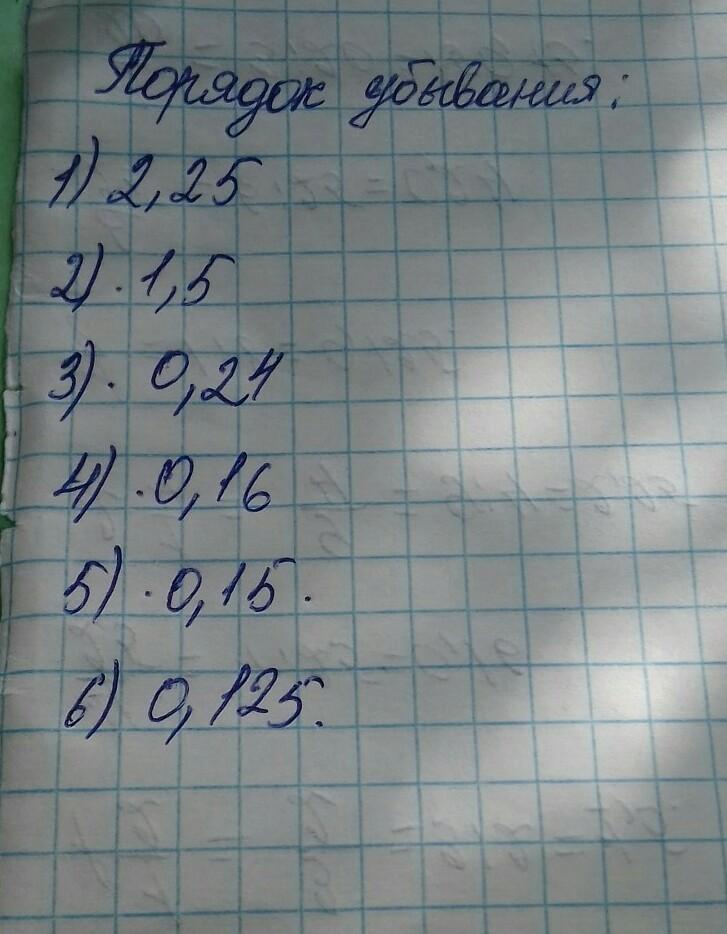 Порядок убывания:
1) 2,25
2) · 1,5
3) · 0,24
4) · 0,16
5) · 0,15.
6) 0,125.